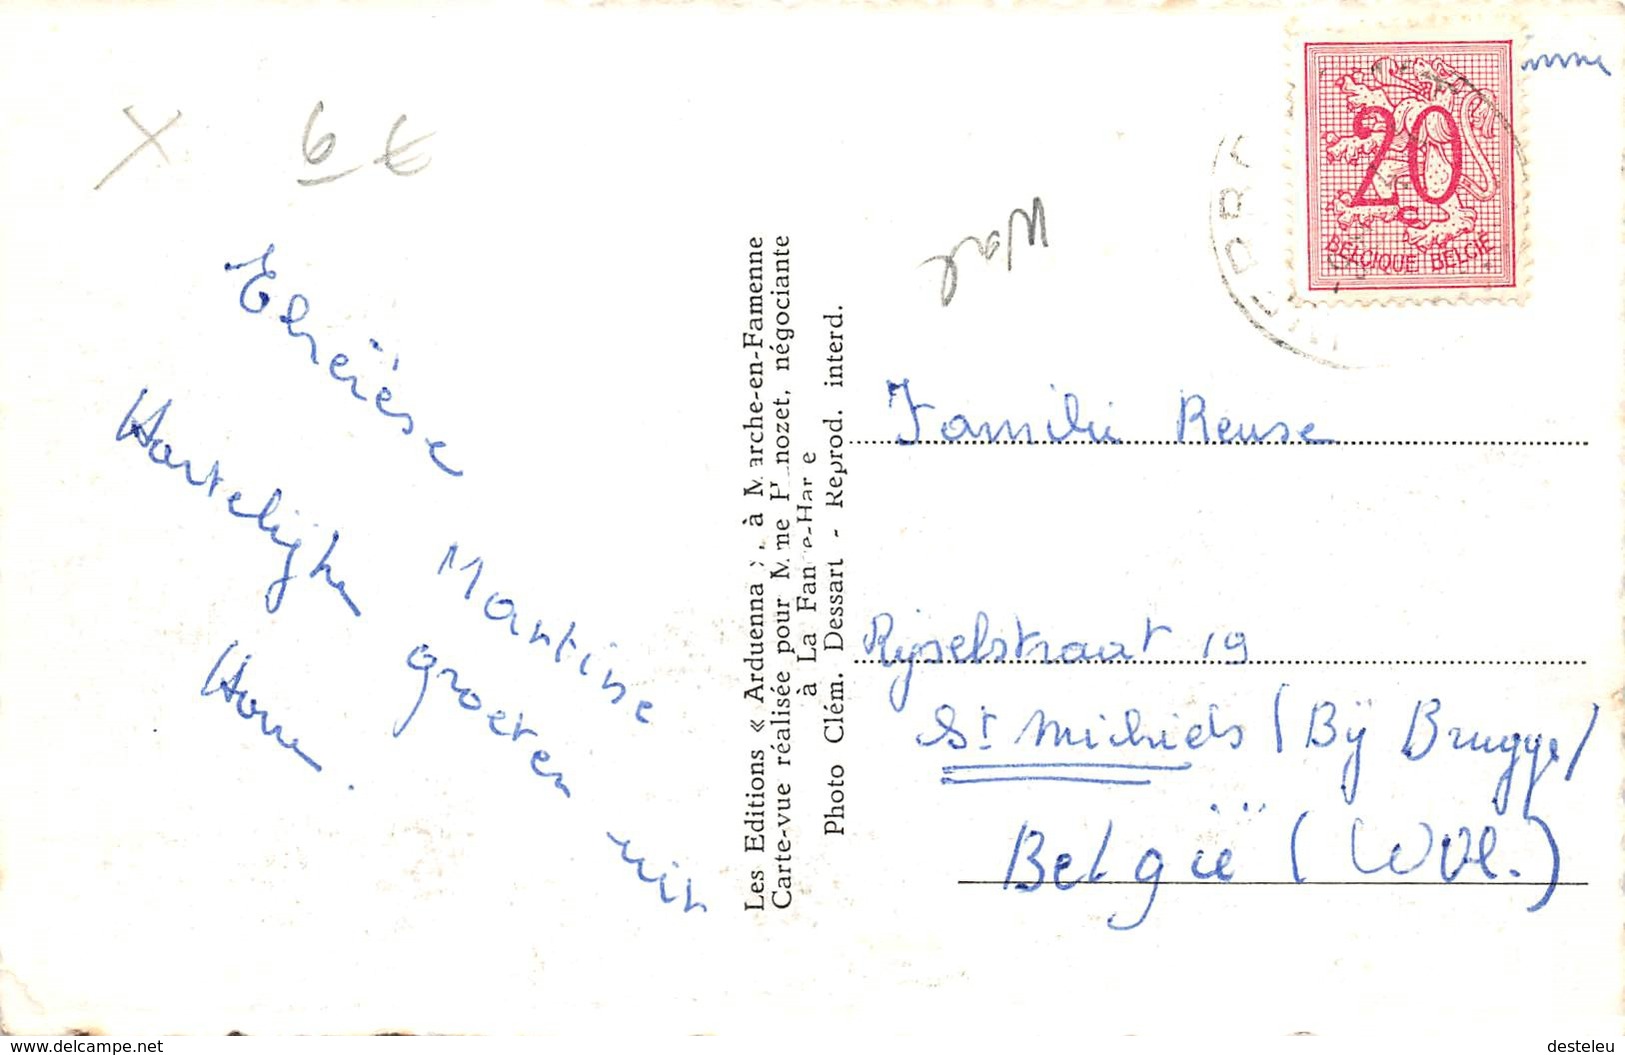 6 €
Martine
Hartelijke groeten uit
Les Editions « Arduenna », à Marche-en-Famenne
Carte-vue réalisée pour Mme P nozet, négociante
à La Fan e-Har e
Photo Clém. Dessart - Reprod. interd.
20
c
BELGIQUE BELGIË
Familie Reuse
Rijselstraat 19
St Michiels (Bij Brugge)
België (WVl.)
www.delcampe.net
desteleu